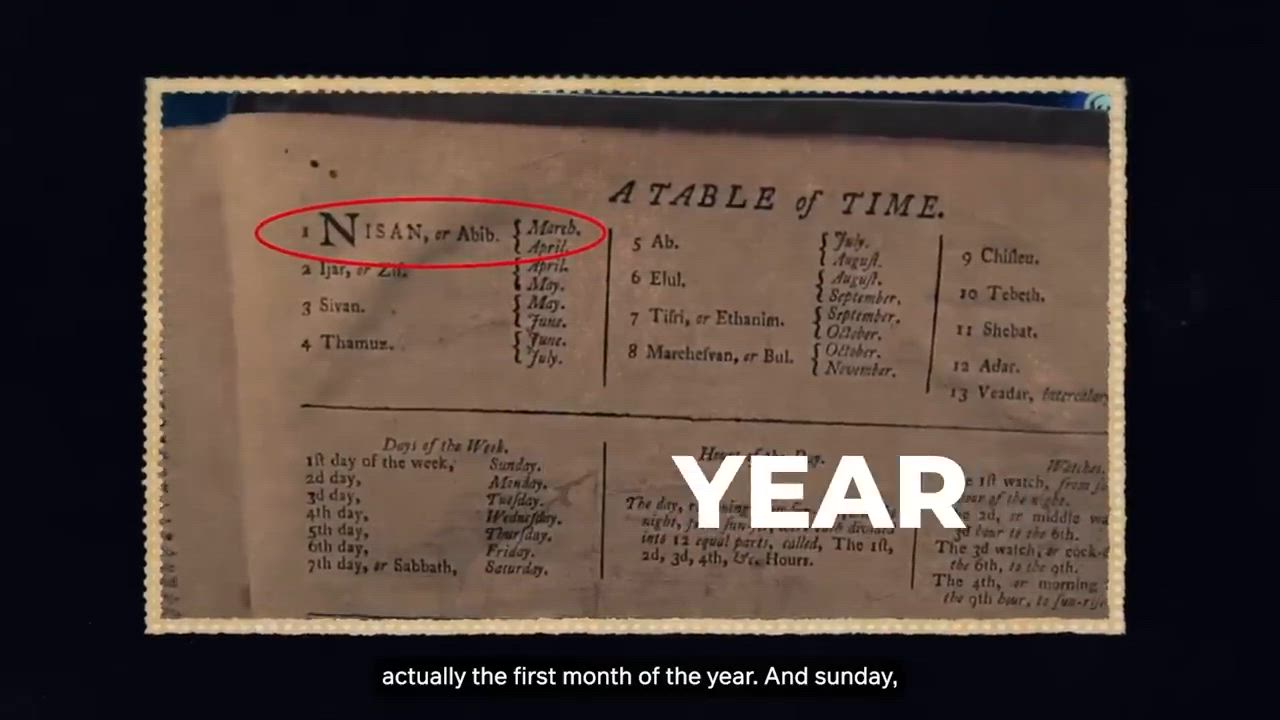 A TABLE of TIME.
1 NISAN, or Abib. { March. April.
2 Ijar, or Zif. { April. May.
3 Sivan. { May. June.
4 Thamuz. { June. July.
5 Ab. { July. August.
6 Elul. { August. September.
7 Tiſri, or Ethanim. { September. October.
8 Marcheſvan, or Bul. { October. November.
9 Chiſleu.
10 Tebeth.
11 Shebat.
12 Adar.
13 Veadar, intercalary
Days of the Week.
1ſt day of the week, Sunday.
2d day, Monday.
3d day, Tueſday.
4th day, Wedneſday.
5th day, Thurſday.
6th day, Friday.
7th day, or Sabbath, Saturday.
of the Day.
The day,
night,
into 12 equal parts, called, The 1ſt,
2d, 3d, 4th, &c. Hours.
Watches.
1ſt watch, from
of the night.
2d, or middle
3d hour to the 6th.
The 3d watch, or cock-
the 6th, to the 9th.
The 4th, or morning
the 9th hour, to ſun-riſe
YEAR
actually the first month of the year. And sunday,